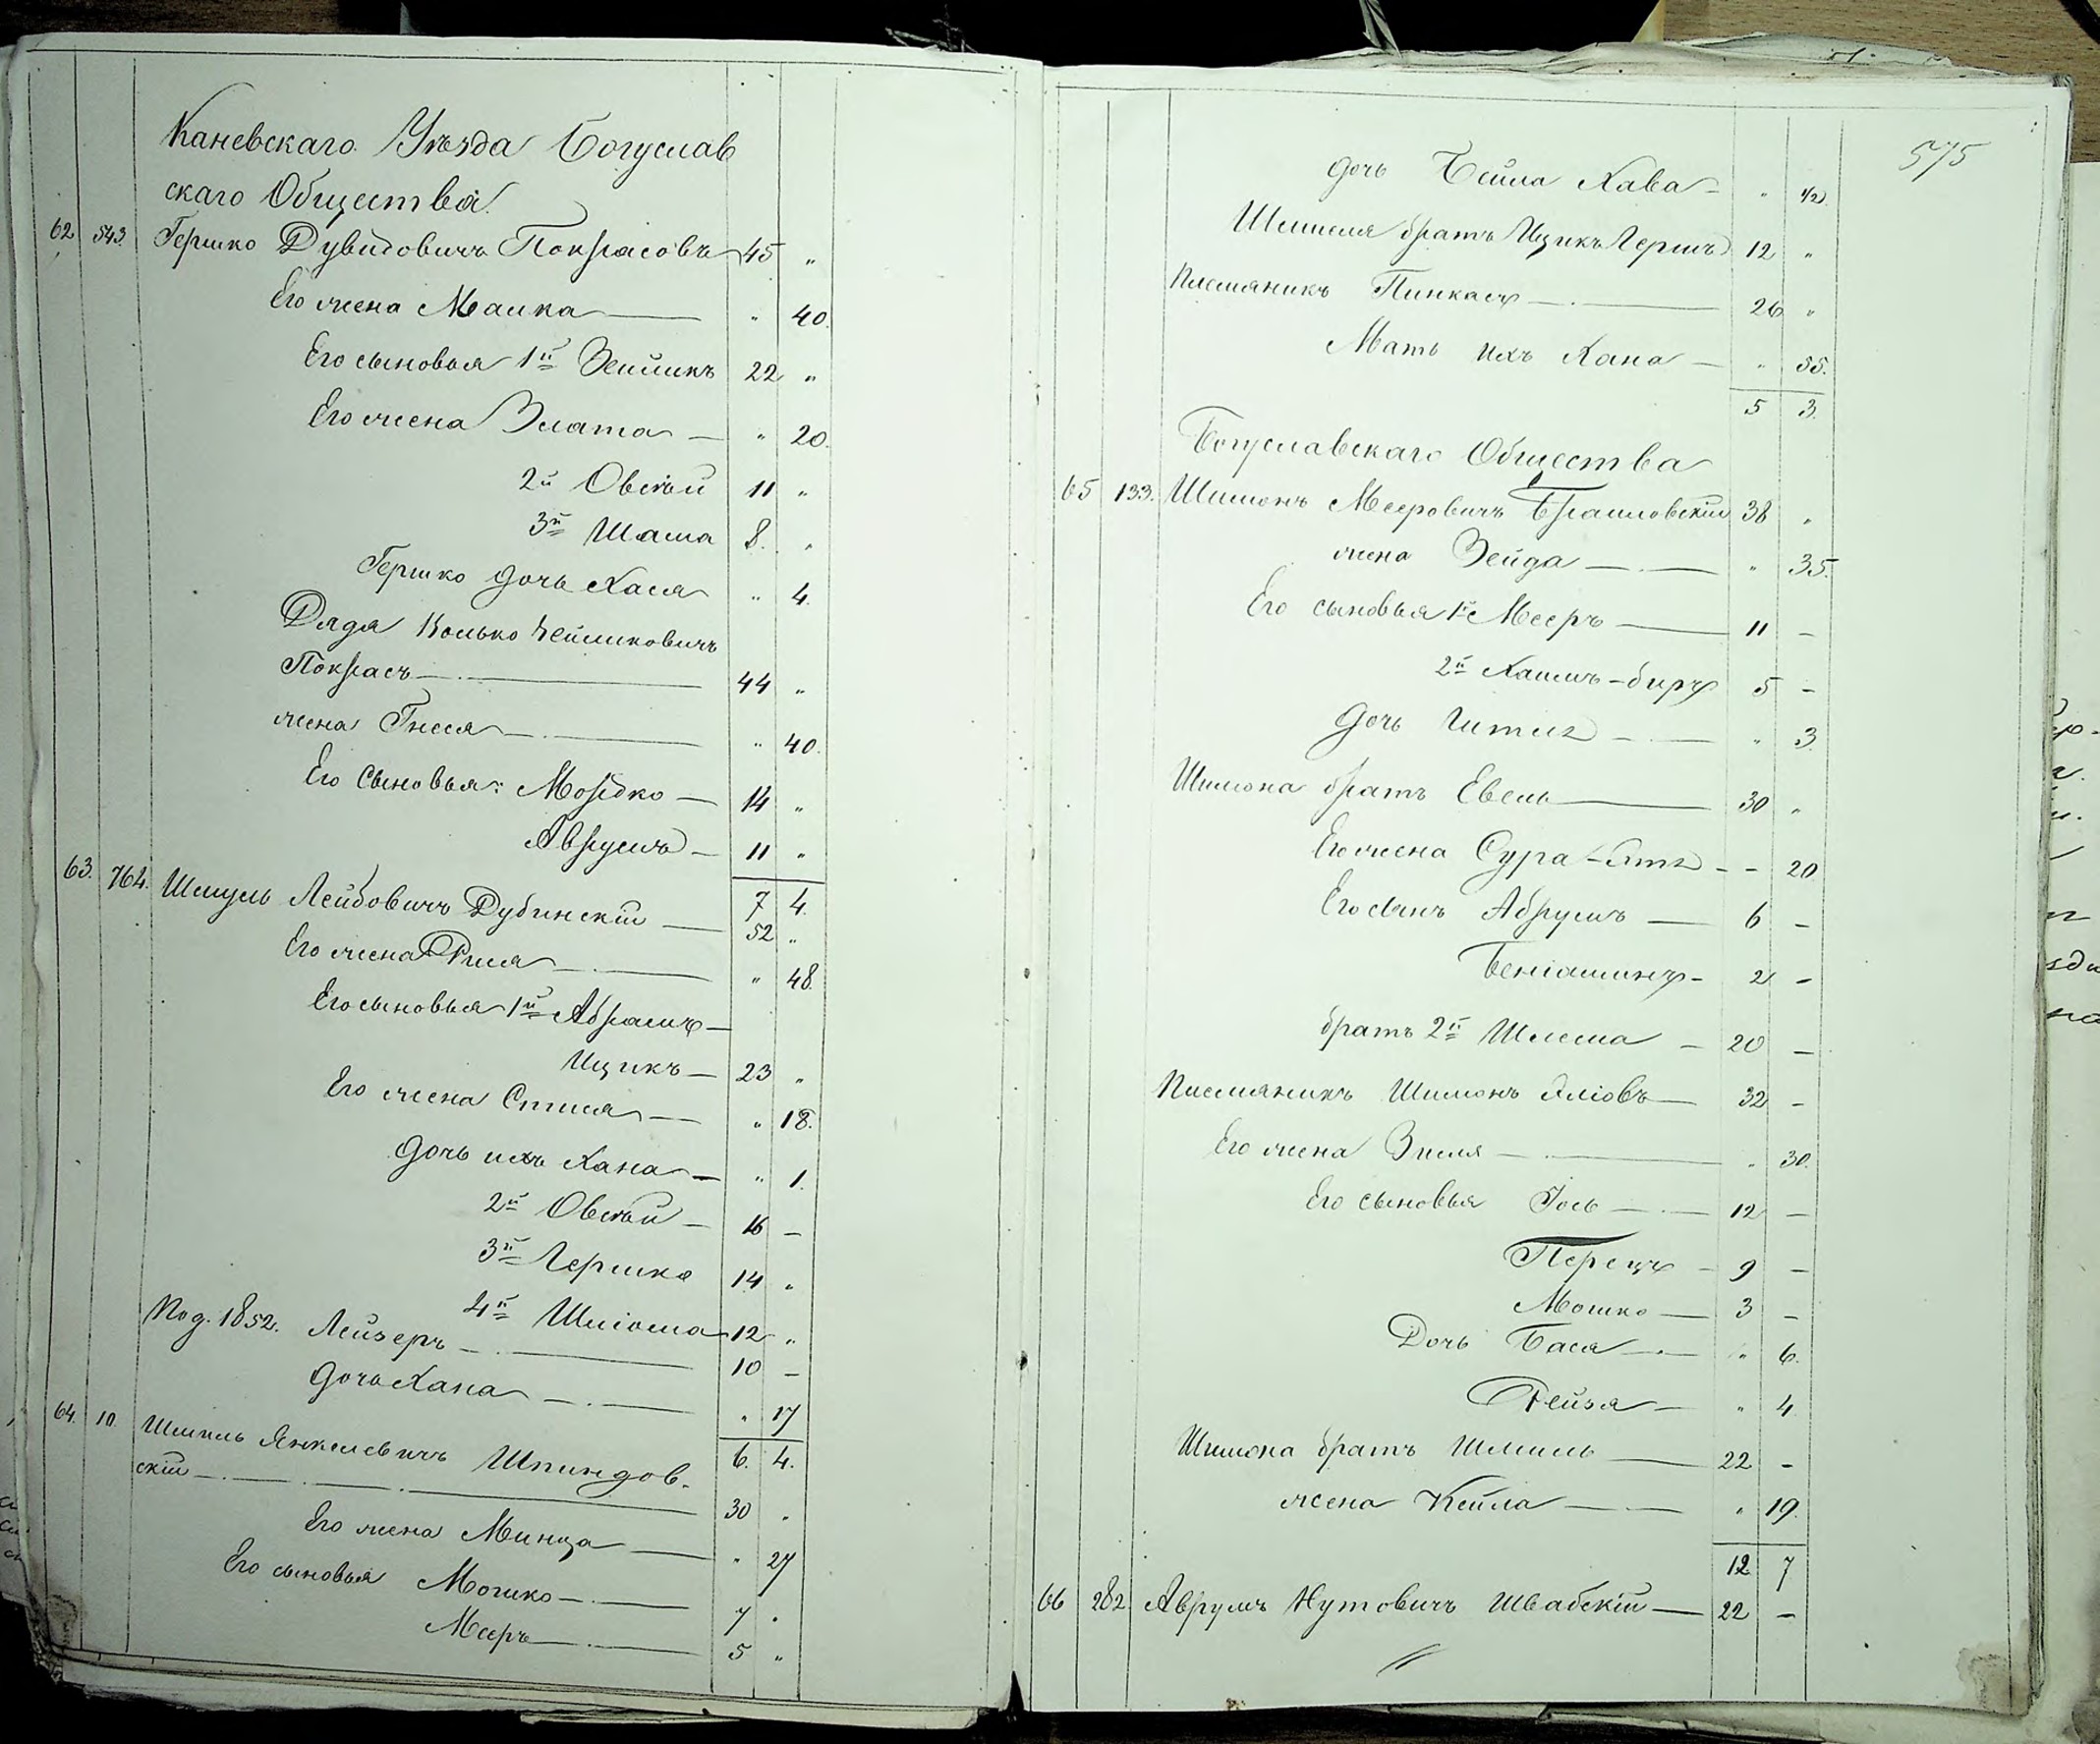 Каневскаго Уѣзда Богуслав
скаго Общества.
62 543. Гершко Дувидовичъ Покрасовъ 45 „
Его жена Малка — „ 40.
Его сыновья 1й Зейликъ 22 „
Его жена Злата — „ 20.
2й Овсѣй 11 „
3й Шама 8. „
Гершко дочь Хася „ 4.
Дядя Волько Зейликовичъ
Покрасъ — 44 „
жена Гнеся — „ 40.
Его сыновья: Мордко — 14 „
Аврумъ — 11 „
7 4.
63. 764. Шмуль Лейбовичъ Дубинскій — 52 „
Его жена Рися — „ 48.
Его сыновья 1й Абрамъ —
Ицикъ — 23 „
Его жена — „ 18.
дочь ихъ Хана — „ 1.
2й Овсѣй — 16 —
3й Гершко 14 „
4й Шліома 12 „
Под. 1852. Лейзеръ — 10 —
дочь Хана — „ 17
6. 4.
64. 10. Шмиль Янкелевичъ Шпиндов-
скій — 30 „
Его жена Минца — „ 27
Его сыновья Мошко — 7 „
Мееръ — 5 „
575
дочь Бейла Хава — „ 1/2.
Шмиля братъ Ицикъ Гершъ 12 „
Племяникъ Пинкасъ — 26 „
Мать ихъ Хана — „ 55.
5 3.
Богуславскаго Общества
65 133. Шимонъ Мееровичъ Браиловскій 38 „
жена Зейда — „ 35.
Его сыновья 1й Мееръ — 11 —
2й Хаимъ-биръ 5 —
дочь — „ 3.
Шимона братъ Евель — 30 „
Его жена Сура — — 20.
Его сынъ Абрумъ — 6 —
Беніаминъ — 2 —
братъ 2й Шлема — 20 —
Племяникъ Шимонъ Эліовъ — 32 —
Его жена Зисля — „ 30.
Его сыновья Іось — 12 —
Перецъ — 9 —
Мошко — 3 —
Дочь Бася — „ 6.
Рейзя — „ 4
Шимона братъ Шмиль — 22 —
жена Кейла — „ 19.
12 7
66 282 Аврумъ Нутовичъ Швабскій — 22 —